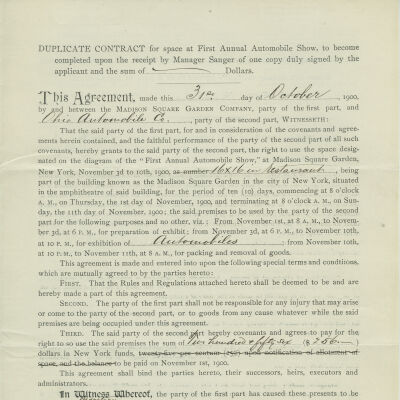 DUPLICATE CONTRACT for space at First Annual Automobile Show, to become
completed upon the receipt by Manager Sanger of one copy duly signed by the
applicant and the sum of Dollars.
This Agreement, made this 31st day of October, 1900,
by and between the MADISON SQUARE GARDEN COMPANY, party of the first part, and
Ohio Automobile Co., party of the second part, WITNESSETH:
That the said party of the first part, for and in consideration of the covenants and agree-
ments herein contained, and the faithful performance of the party of the second part of all such
covenants, hereby grants to the said party of the second part, the right to use the space desig-
nated on the diagram of the "First Annual Automobile Show," at Madison Square Garden,
New York, November 3d to 10th, 1900, as number 16x16 in Restaurant, being
part of the building known as the Madison Square Garden in the city of New York, situated
in the amphitheatre of said building, for the period of ten (10) days, commencing at 8 o'clock
A. M., on Thursday, the 1st day of November, 1900, and terminating at 8 o'clock A. M., on Sun-
day, the 11th day of November, 1900; the said premises to be used by the party of the second
part for the following purposes and no other, viz.; From November 1st, at 8 A. M., to Novem-
ber 3d, at 6 P. M., for preparation of exhibit; from November 3d, at 6 P. M., to November 10th,
at 10 P. M., for exhibition of Automobiles; from November 10th,
at 10 P. M., to November 11th at 8 A. M., for packing and removal of goods.
This agreement is made and entered into upon the following special terms and conditions,
which are mutually agreed to by the parties hereto:
FIRST. That the Rules and Regulations attached hereto shall be deemed to be and are
hereby made a part of this agreement.
SECOND. The party of the first part shall not be responsible for any injury that may arise
or come to the party of the second part, or to goods from any cause whatever while the said
premises are being occupied under this agreement.
THIRD. The said party of the second part hereby covenants and agrees to pay for the
right to so use the said premises the sum of Two hundred & fifty six ($256—)
dollars in New York funds, twenty-five per centum (25%) upon notification of allotment of
space, and the balance to be paid on November 1st, 1900.
This agreement shall bind the parties hereto, their successors, heirs, executors and
administrators.
In Witness Whereof, the party of the first part has caused these presents to be